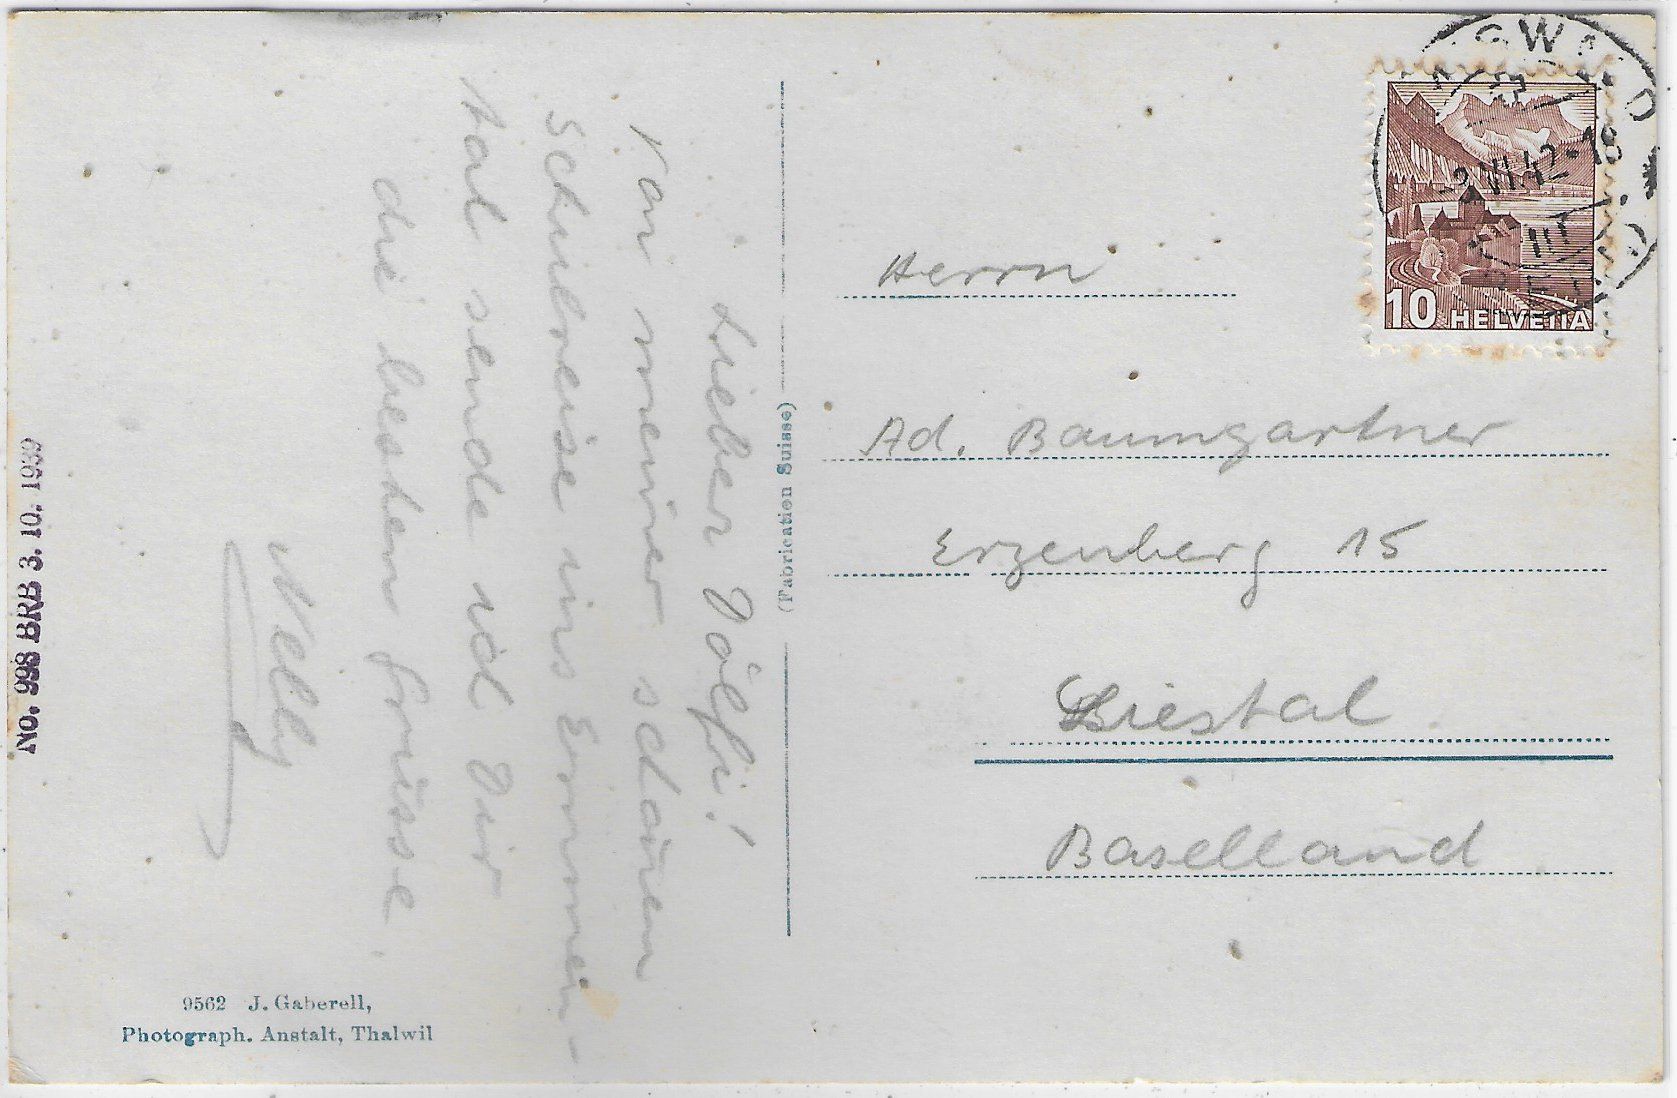 Lieber Dölfi!
Von meiner schönen
Schulreise ins Emmen-
tal sende ich Dir
die besten Grüsse.
Nelly
Herrn
Ad. Baumgartner
Erzenberg 15
Liestal
Baselland
10 HELVETIA
-2.VI.42-18
(Fabrication Suisse)
No. 998 BRB 3. 10. 1939
9562 J. Gaberell,
Photograph. Anstalt, Thalwil